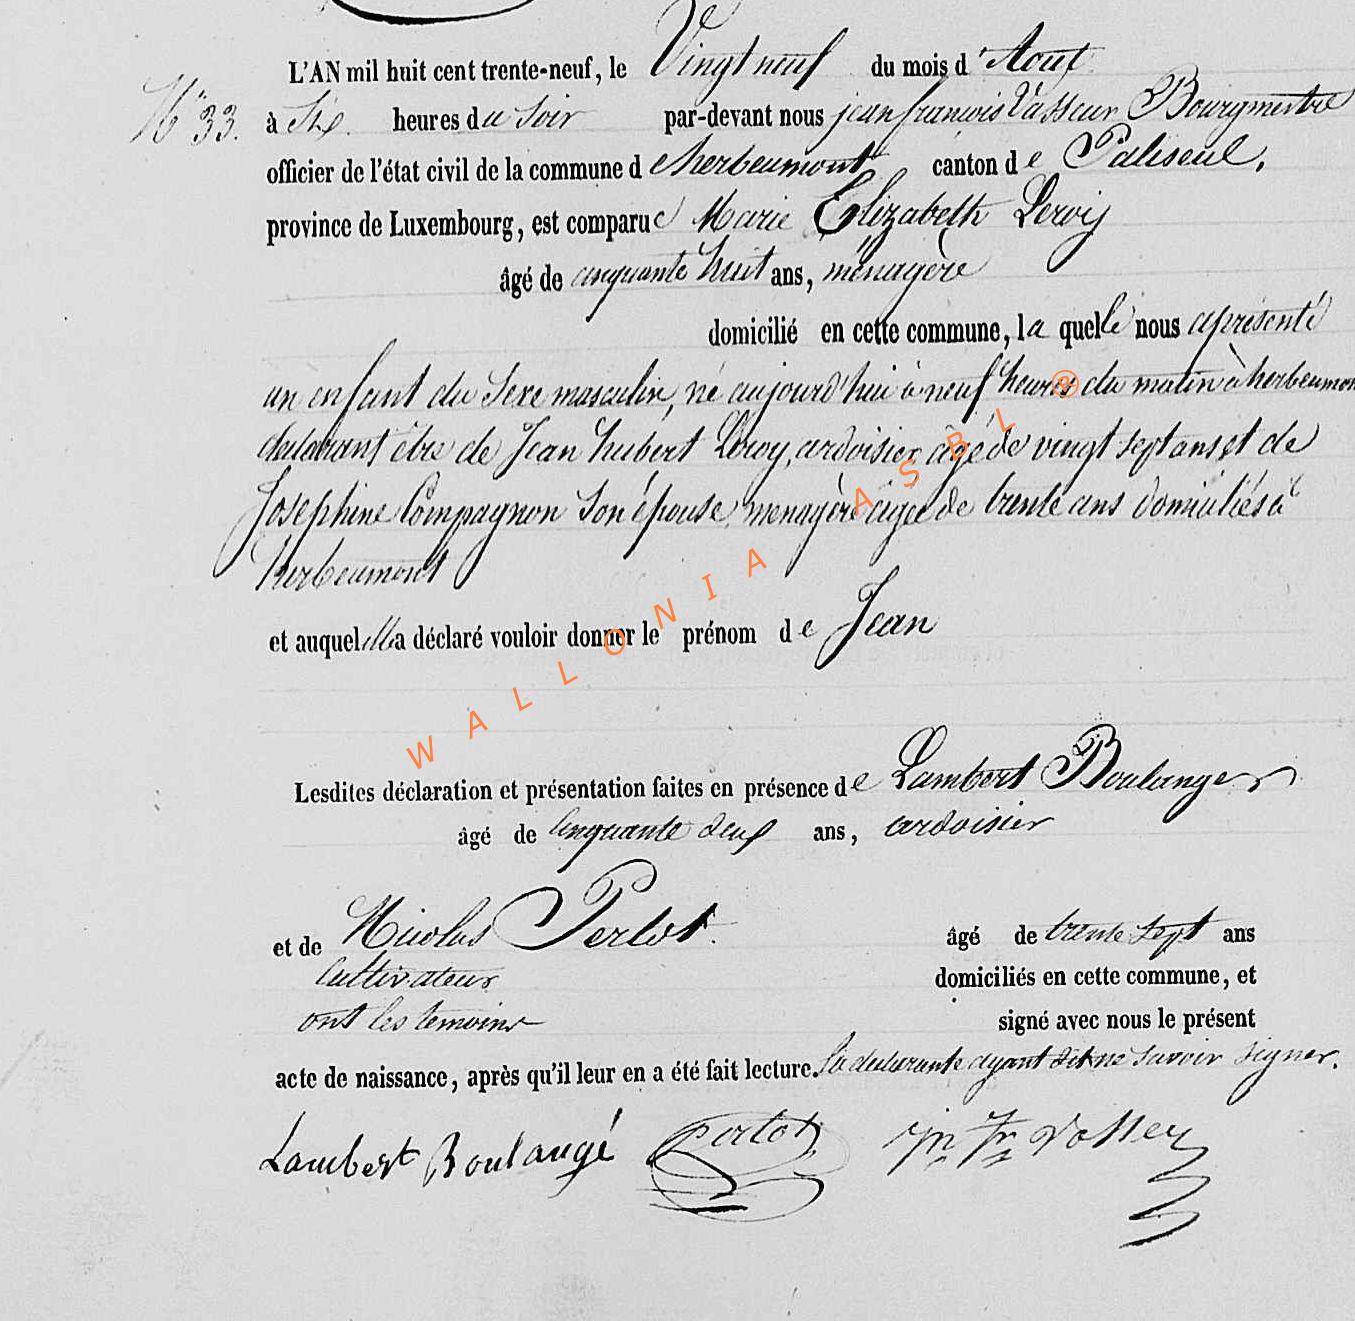 L'AN mil huit cent trente-neuf, le Vingt neuf du mois d'Aout
N° 33. à Six heures du Soir par-devant nous jean françois Vasseur Bourgmestre
officier de l'état civil de la commune de herbeumont canton de Paliseul,
province de Luxembourg, est comparue Marie Elizabeth Leroy
âgé de cinquante huit ans, ménagère
domicilié en cette commune, la quelle nous a présenté
un enfant du Sexe masculin, né aujourd'hui à neuf heures du matin à herbeumont
declarant être de Jean hubert Leroy, ardoisier agé de vingt sept ans, et de
Josephine Compagnon Son épouse, menagère agée de trente ans domiciliés à
herbeumont
et auquel elle a déclaré vouloir donner le prénom de Jean
Lesdites déclaration et présentation faites en présence de Lambert Boulanger
âgé de Cinquante deux ans, ardoisier
et de Nicolas Perlot. âgé de trente Sept ans
Cultivateur domiciliés en cette commune, et
ont les temoins signé avec nous le présent
acte de naissance, après qu'il leur en a été fait lecture. la declarante ayant dit ne Savoir Signer.
Lambert Boulangé Perlot jn fr Vasseur
WALLONIA ASBL ®